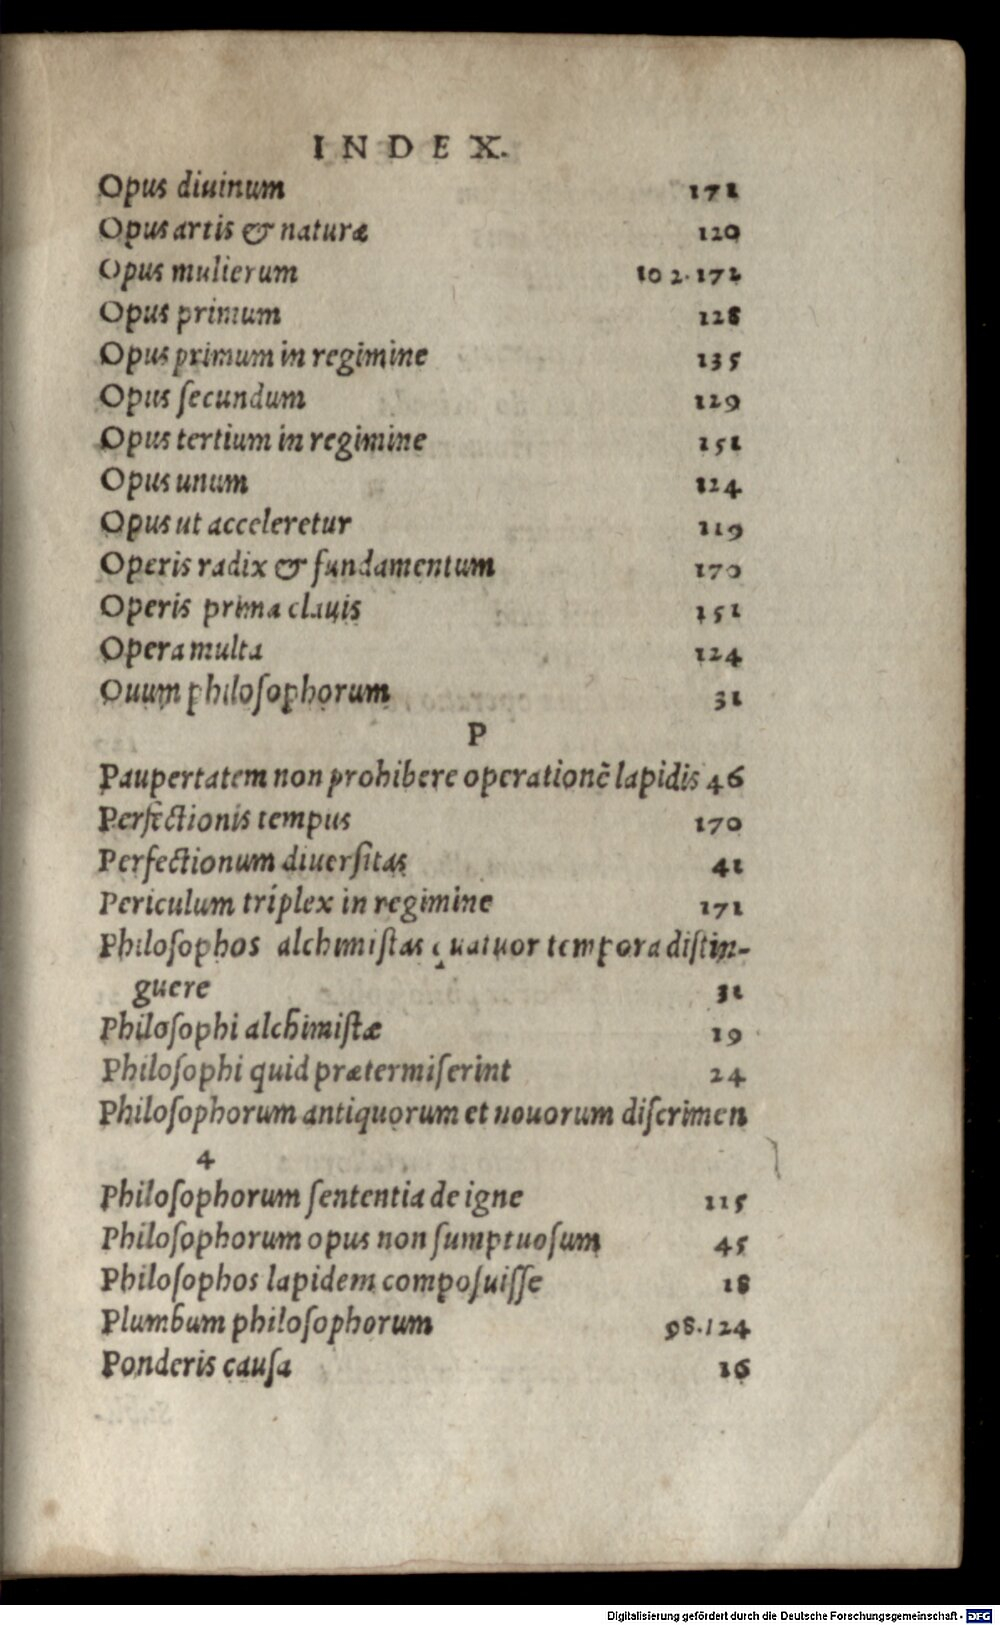 INDEX.
Opus diuinum 171
Opus artis & naturæ 120
Opus mulierum 102.172
Opus primum 128
Opus primum in regimine 135
Opus ſecundum 129
Opus tertium in regimine 151
Opus unum 124
Opus ut acceleretur 119
Operis radix & fundamentum 170
Operis prima clauis 151
Opera multa 124
Ouum philoſophorum 31
P
Paupertatem non prohibere operationē lapidis 46
Perfectionis tempus 170
Perfectionum diuerſitas 41
Periculum triplex in regimine 171
Philoſophos alchimiſtas quatuor tempora diſtin-
guere 31
Philoſophi alchimiſtæ 19
Philoſophi quid prætermiſerint 24
Philoſophorum antiquorum et nouorum diſcrimen
4
Philoſophorum ſententia de igne 115
Philoſophorum opus non ſumptuoſum 45
Philoſophos lapidem compoſuiſſe 18
Plumbum philoſophorum 98.124
Ponderis cauſa 16
Digitalisierung gefördert durch die Deutsche Forschungsgemeinschaft - DFG